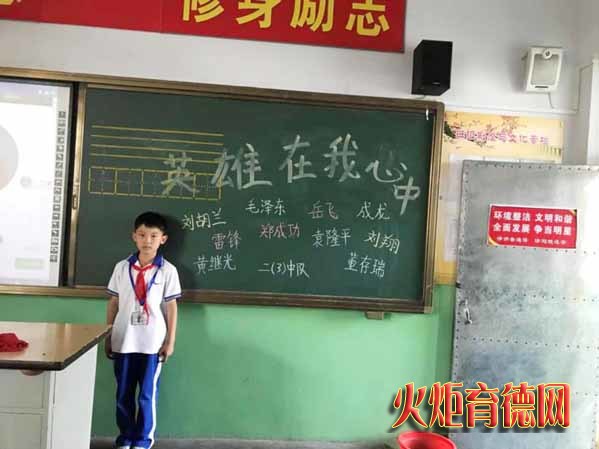 修身励志
英雄在我心中
刘胡兰 毛泽东 岳飞 成龙
雷锋 郑成功 袁隆平 刘翔
黄继光 二(3)中队 董存瑞
环境整洁 文明和谐
全面发展 争当明星
火炬育德网